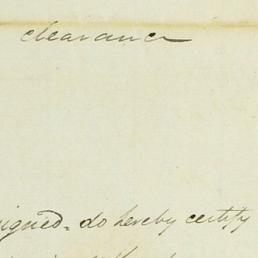 clearance
signed = do hereby certify